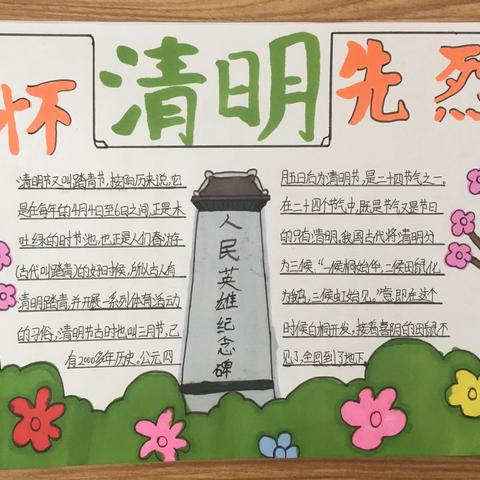 怀 清明 先烈
清明节又叫踏青节,按阳历来说,它
是在每年的4月4日至6日之间,正是木
吐绿的时节池,也正是人们春游
(古代叫踏青)的好时候,所以古人有
清明踏青,并开展一系列体育活动
的习俗,清明节古时也叫三月节,已
有2000多年历史。公元四
人民英雄纪念碑
月五日后为清明节,是二十四节气之一。
在二十四个节气中,既是节气又是节日
的只有清明,我国古代将清明分
为三候:“一候桐始华,二候田鼠化
为鹌,三候虹始见。”意即在这个
时候白桐开发,接着喜阴的田鼠不
见了,全回到了地下。